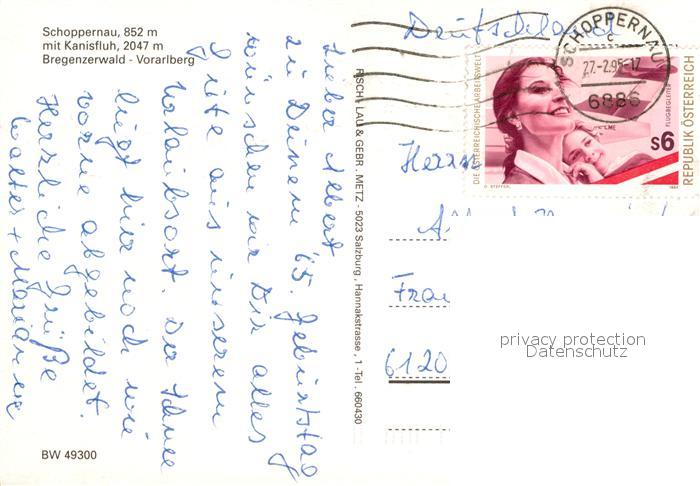 Schoppernau, 852 m
mit Kanisfluh, 2047 m
Bregenzerwald - Vorarlberg
Lieber Albert
zu Deinem 65. Geburtstag
wünschen wir Dir alles
Gute aus unserem
Urlaubsort. Der Schnee
liegt hier noch wie
vorne abgebildet.
Herzliche Grüße
Walter + Marianne
BW 49300
RISCH-LAU & GEBR. METZ - 5023 Salzburg, Hannakstrasse, 1 - Tel. 660430
Deutschland
SCHOPPERNAU
c
27.-2.95-17
6886
DIE ÖSTERREICHISCHE ARBEITSWELT
FLUGBEGLEITER
S6
REPUBLIK ÖSTERREICH
1994
Herrn
Fran
6120
privacy protection
Datenschutz